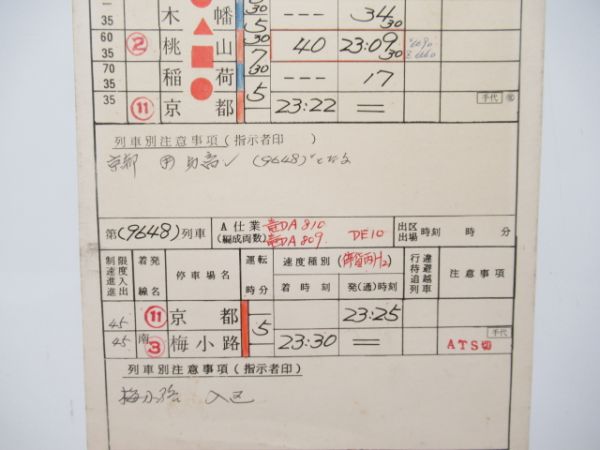 木幡 5 --- 34 30
35
60 ② 桃山 30 40 23:09 30
35 7
70 稲荷 30 --- 17
35 5
35 ⑪ 京都 23:22 = 手代
列車別注意事項(指示者印 )
京都 (9648)
第(9648)列車 A仕業 (編成両数) DA810 DA809 DE10 出区 出場 時刻 時 分
制限速度 進入 進出 着発線名 停車場名 運転時分 速度種別 着時刻 発(通)時刻 行違 待避 追越 列車 注意事項
45 ⑪ 京都 5 23:25
45 南③ 梅小路 23:30 = 手代 ATS切
列車別注意事項(指示者印 )
梅小路 入区